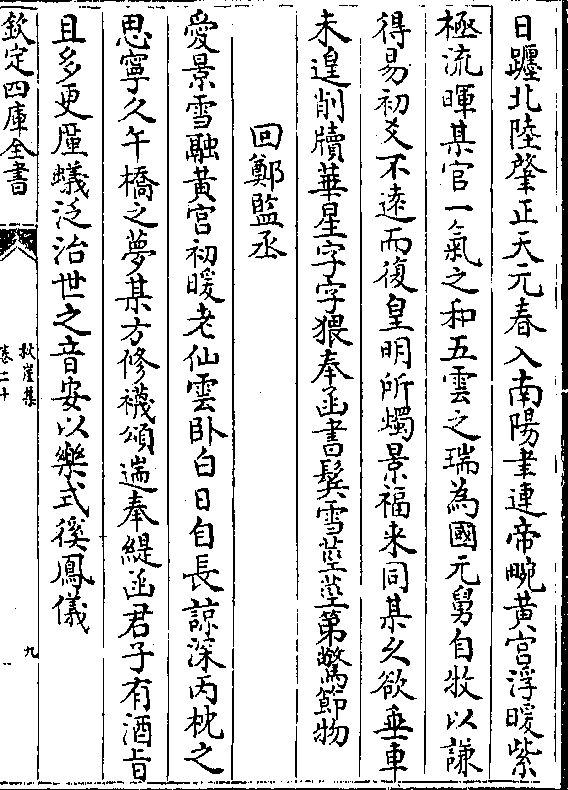 日躔北陸肇正天元春入南陽聿連帝畹黃宮浮暖紫
極流暉某官一氣之和五雲之瑞為國元舅自牧以謙
得易初爻不遠而復皇明所燭景福来同某久欲垂車
未遑削牘華星字字猥奉函書鬢雪莖莖第驚節物
回鄭監丞
愛景雪融黃宮初暖老仙雲卧白日自長諒深丙枕之
思寧久午橋之夢某方修襪頌遄奉緹函君子有酒旨
且多更厪蟻泛治世之音安以樂式徯鳳儀
欽定四庫全書
九